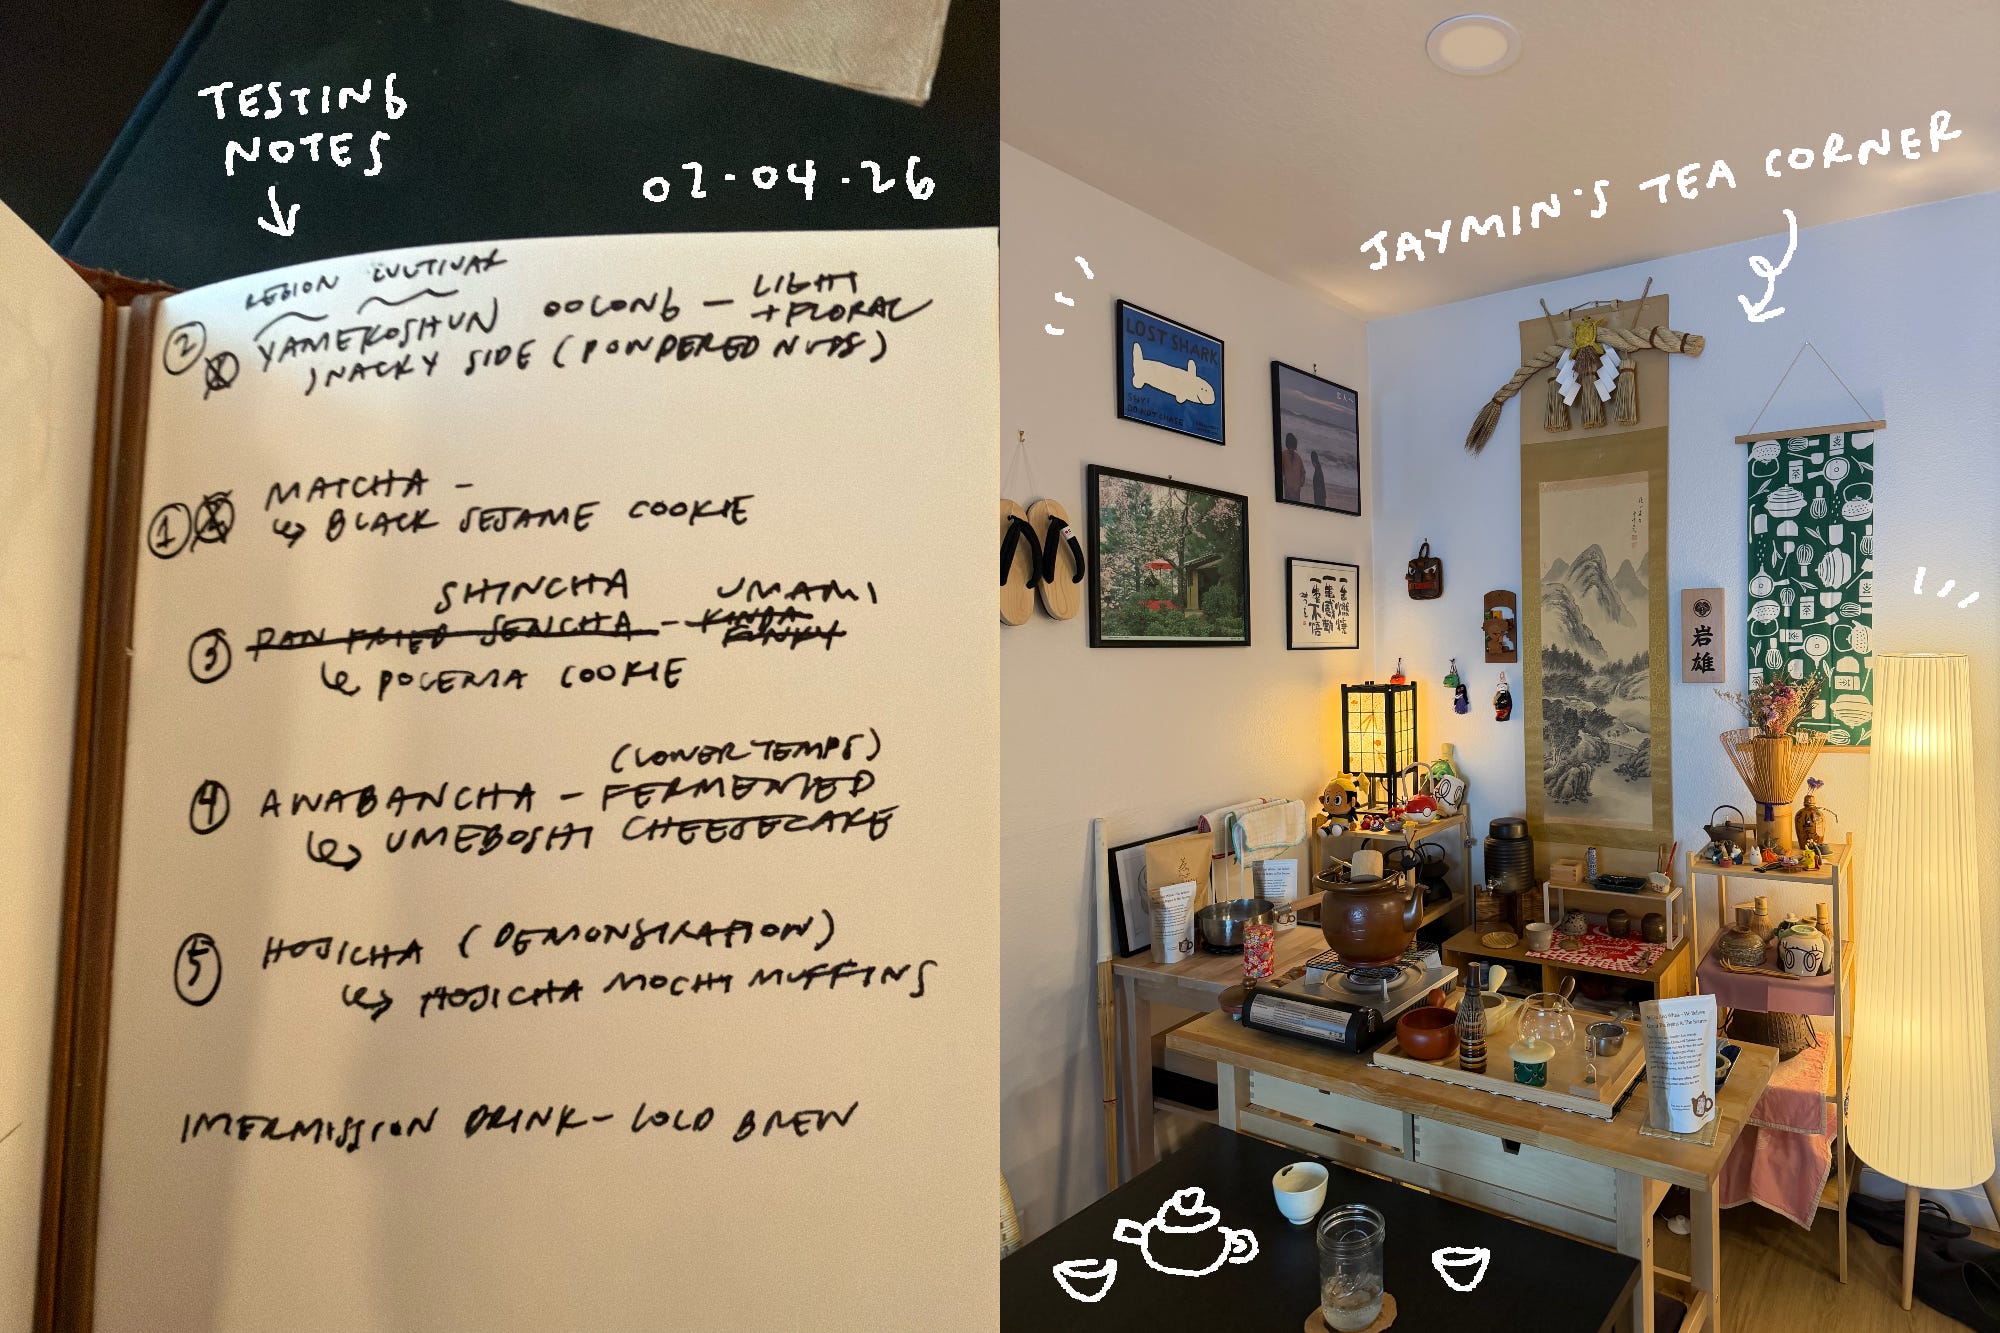 TESTING
NOTES
02.04.26
REGION CULTIVAR
② YAMEKOSHUN OOLONG - LIGHT
+ FLORAL
SNACKY SIDE (POWDERED NUTS)
① MATCHA -
↳ BLACK SESAME COOKIE
SHINCHA UMAMI
③ PAN FRIED SENCHA - KINDA
FUNKY
↳ COOKIE
(LOWER TEMPS)
④ AWABANCHA - FERMENTED
↳ UMEBOSHI CHEESECAKE
⑤ HOJICHA (DEMONSTRATION)
↳ HOJICHA MOCHI MUFFINS
INTERMISSION DRINK - COLD BREW
JAYMIN'S TEA CORNER
LOST SHARK
SHY!
DO NOT CHASE
岩雄